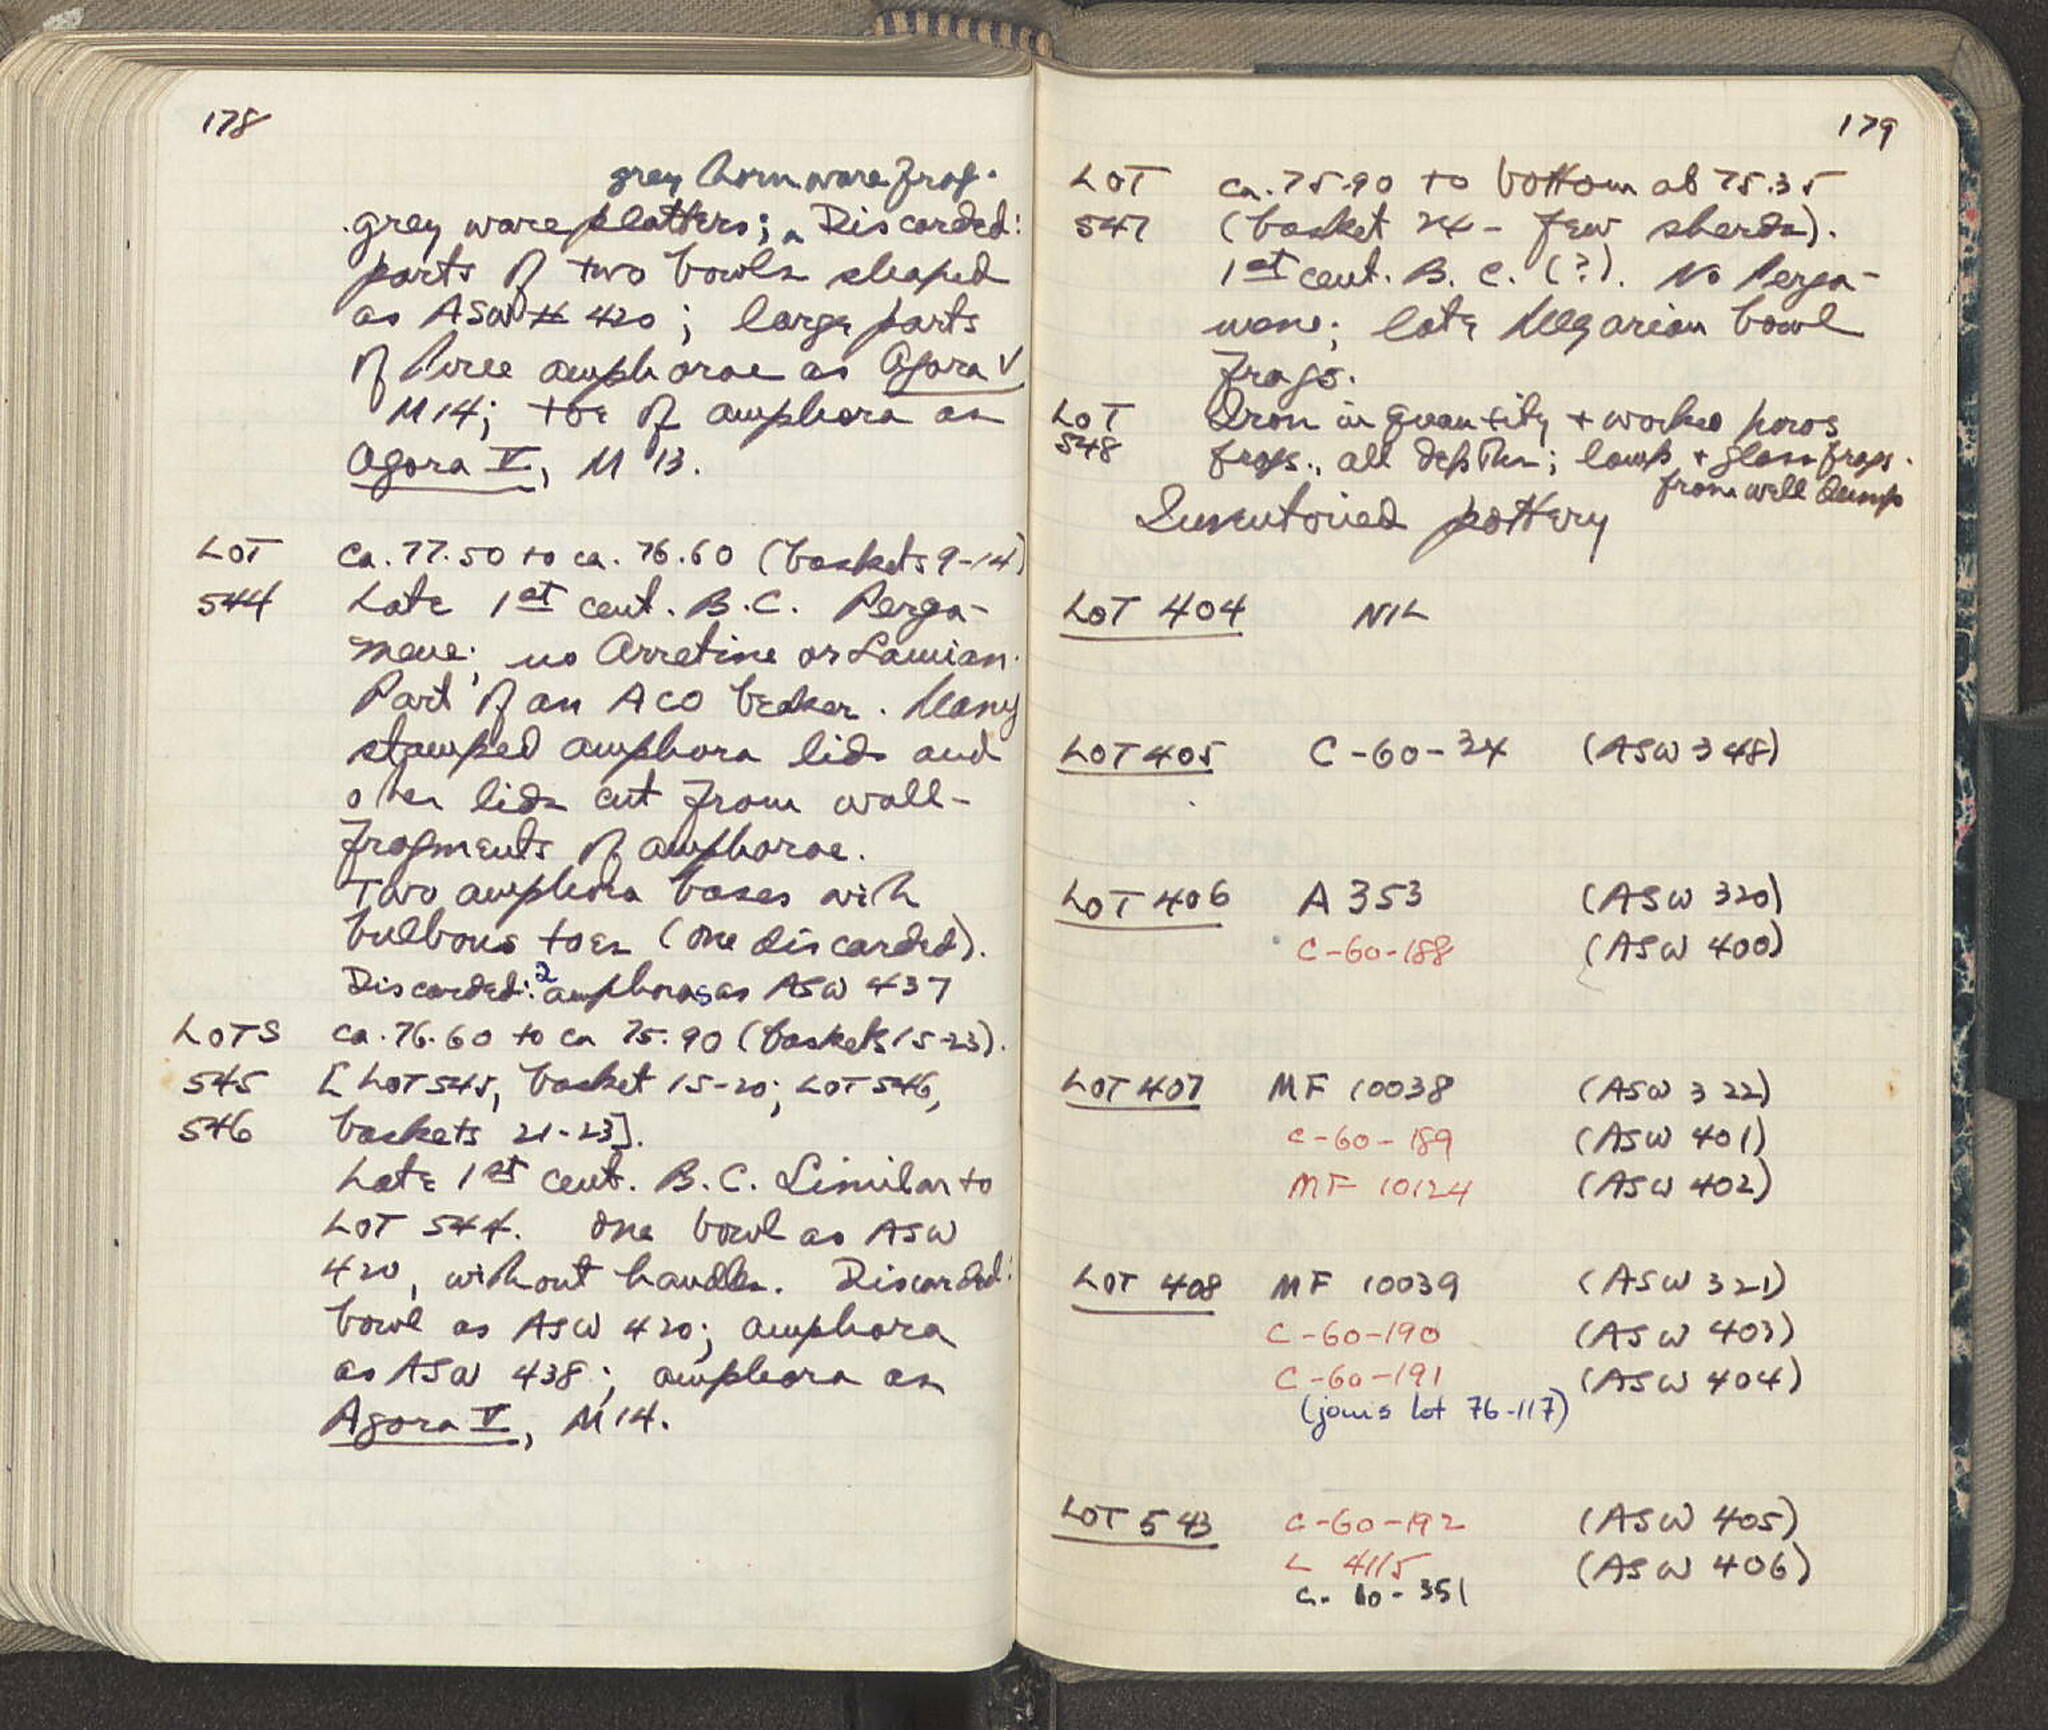 178
grey thorn ware frag.
grey ware platters; Discarded:
parts of two bowls shaped
as ASW # 420; large parts
of three amphorae as Agora V
M14; toe of amphora as
Agora V, M 13.
LOT ca. 77.50 to ca. 76.60 (baskets 9-14)
544 Late 1st cent. B.C. Perga-
mene; no Arretine or Samian.
Part of an ACO beaker. Many
stamped amphora lids and
other lids cut from wall-
fragments of amphorae.
Two amphora bases with
bulbous toes (one discarded).
Discarded: 2 amphoras as ASW 437
LOTS ca. 76.60 to ca 75.90 (baskets 15-23).
545 [LOT 545, basket 15-20; LOT 546,
546 baskets 21-23].
Late 1st cent. B.C. Similar to
LOT 544. One bowl as ASW
420, without handles. Discarded:
bowl as ASW 420; amphora
as ASW 438; amphora as
Agora V, M14.
179
LOT ca. 75.90 to bottom at 75.35
547 (basket 24 - few sherds).
1st cent. B.C. (?). No Perga-
mene; late Megarian bowl
frags.
LOT Iron in quantity + worked poros
548 frags., all depths; lamp + glass frags.
from well dump
Inventoried pottery
LOT 404 NIL
LOT 405 C-60-34 (ASW 348)
LOT 406 A 353 (ASW 320)
C-60-188 (ASW 400)
LOT 407 MF 10038 (ASW 322)
C-60-189 (ASW 401)
MF 10124 (ASW 402)
LOT 408 MF 10039 (ASW 321)
C-60-190 (ASW 403)
C-60-191 (ASW 404)
(joins lot 76-117)
LOT 543 C-60-192 (ASW 405)
L 4115 (ASW 406)
C-60-351